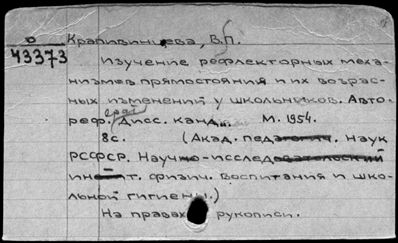 О
43373
Крапивинцева, В.П.
Изучение рефлекторных меха-
низмов прямостояния и их возраст-
ных изменений у школьников. Авто-
реф. Дисс. канд. М. 1954.
8с. (Акад. педагогич. Наук
РСФСР. Научно-исследовательский
инст. физич. воспитания и шко-
льной гигиены.)
На правах рукописи.